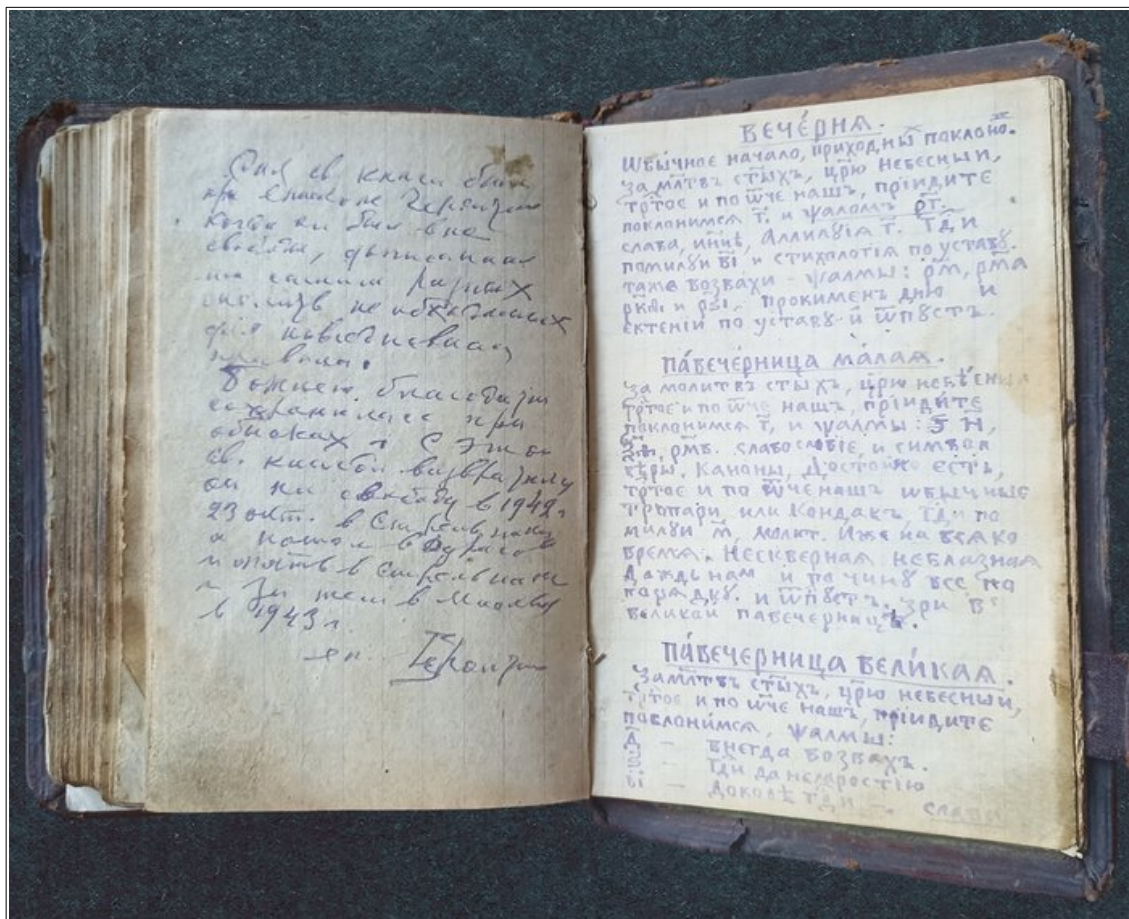 Сия св книга была
при епископе Геронтии
когда он был в не
свободы, дописанная
им самим разных
молитв не обходимых
для повседневная
правила.
Божиею благодатию
сохранилась при
обысках и с этой
св. книгой возвратился
он на свободу в 1942 г
23 окт. в
а потом в
и опять в
и в Москву
в 1943 г.
еп. Геронтий
ВЕЧЕ́РНѦ.
Ѡбычное начало, приходныѧ поклоно.
за мл҃твъ ст҃ыхъ, цр҃ю небесныи,
тр҃тое и по ѿче нашъ, прїидите
поклонимсѧ г҃. и ѱаломъ р҃г.
слава, и нн҃ѣ, Аллилꙋїѧ г҃. Гд҃и
помилꙋи в҃і и стихологїѧ по уставꙋ.
таже возвахи - ѱалмы: р҃м, р҃ма
р҃кѳ и р҃ѕі. прокименъ дню и
ектенїи по уставꙋ и ѿпꙋстъ.
ПА́ВЕЧЕ́РНИЦА МА́ЛАѦ.
За молитвъ ст҃ыхъ, цр҃ю
тр҃тое и по ѿче нашъ, прїиди́те
поклонимсѧ г҃, и ѱалмы: н҃,
р҃мв. славословїе, и символ
вѣры. Каноны, Достойно есть,
тр҃тое и по ѿче нашъ ѡбычные
тропари, или Кондакъ, Гд҃и по
милꙋи м҃, молит. Иже на всѧко
времѧ. Нескверная неблазная
Даждь нам и по чинꙋ все по
порѧдкꙋ. и ѿпꙋстъ. Зри в
великой павечерницѣ.
ПА́ВЕЧЕРНИЦА ВЕЛИ́КАѦ.
За мл҃твъ ст҃ыхъ, цр҃ю небесныи,
тр҃тое и по ѿче нашъ, прїидите
поклони́мсѧ, ѱалмы:
д҃ – внегда возвахъ.
ѕ҃ – Гд҃и да не ꙗростїю
в҃і – доколѣ Гд҃и –. слава